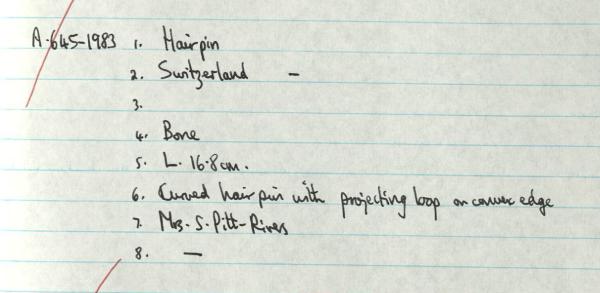 A.645-1983 1. Hairpin
2. Switzerland –
3.
4. Bone
5. L. 16.8cm.
6. Curved hairpin with projecting loop on convex edge
7. Mrs. S. Pitt-Rivers
8. —